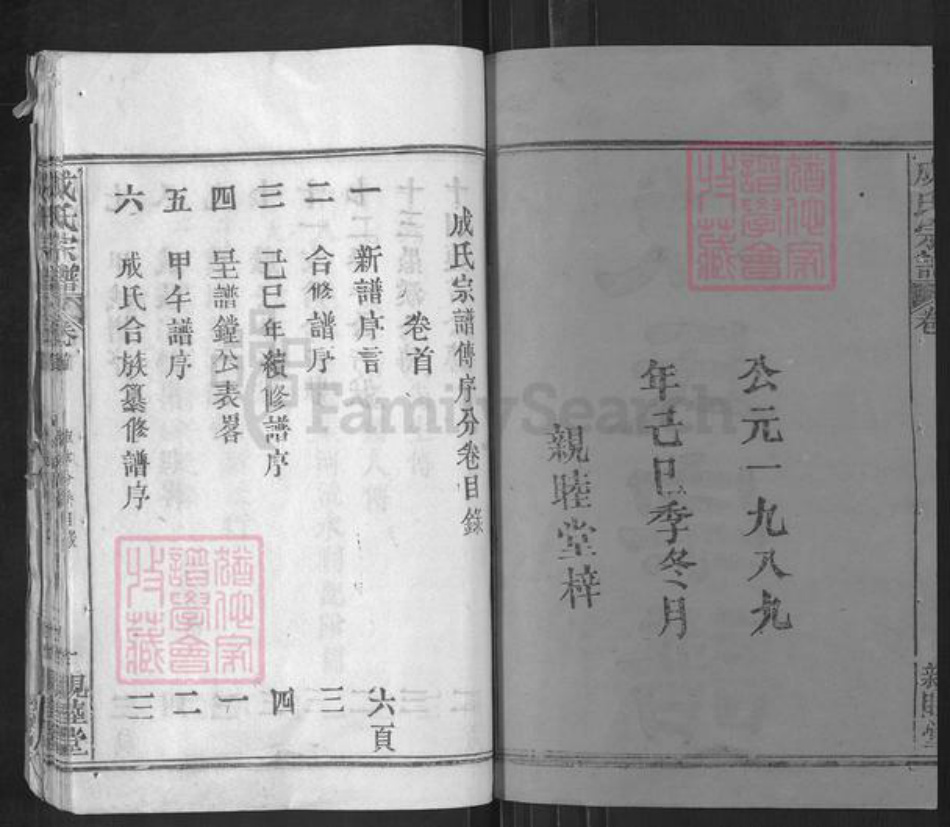 公元一九八九
年己巳季冬月
親睦堂梓
成氏宗譜卷
成氏宗譜傳序分卷目錄
卷首
一 新譜序言 六頁
二 合修譜序 三
三 己巳年續修譜序 四
四 呈譜鏜公表畧 一
五 甲午譜序 二
六 成氏合族纂修譜序 三
成氏宗譜 卷首
親睦堂
FamilySearch